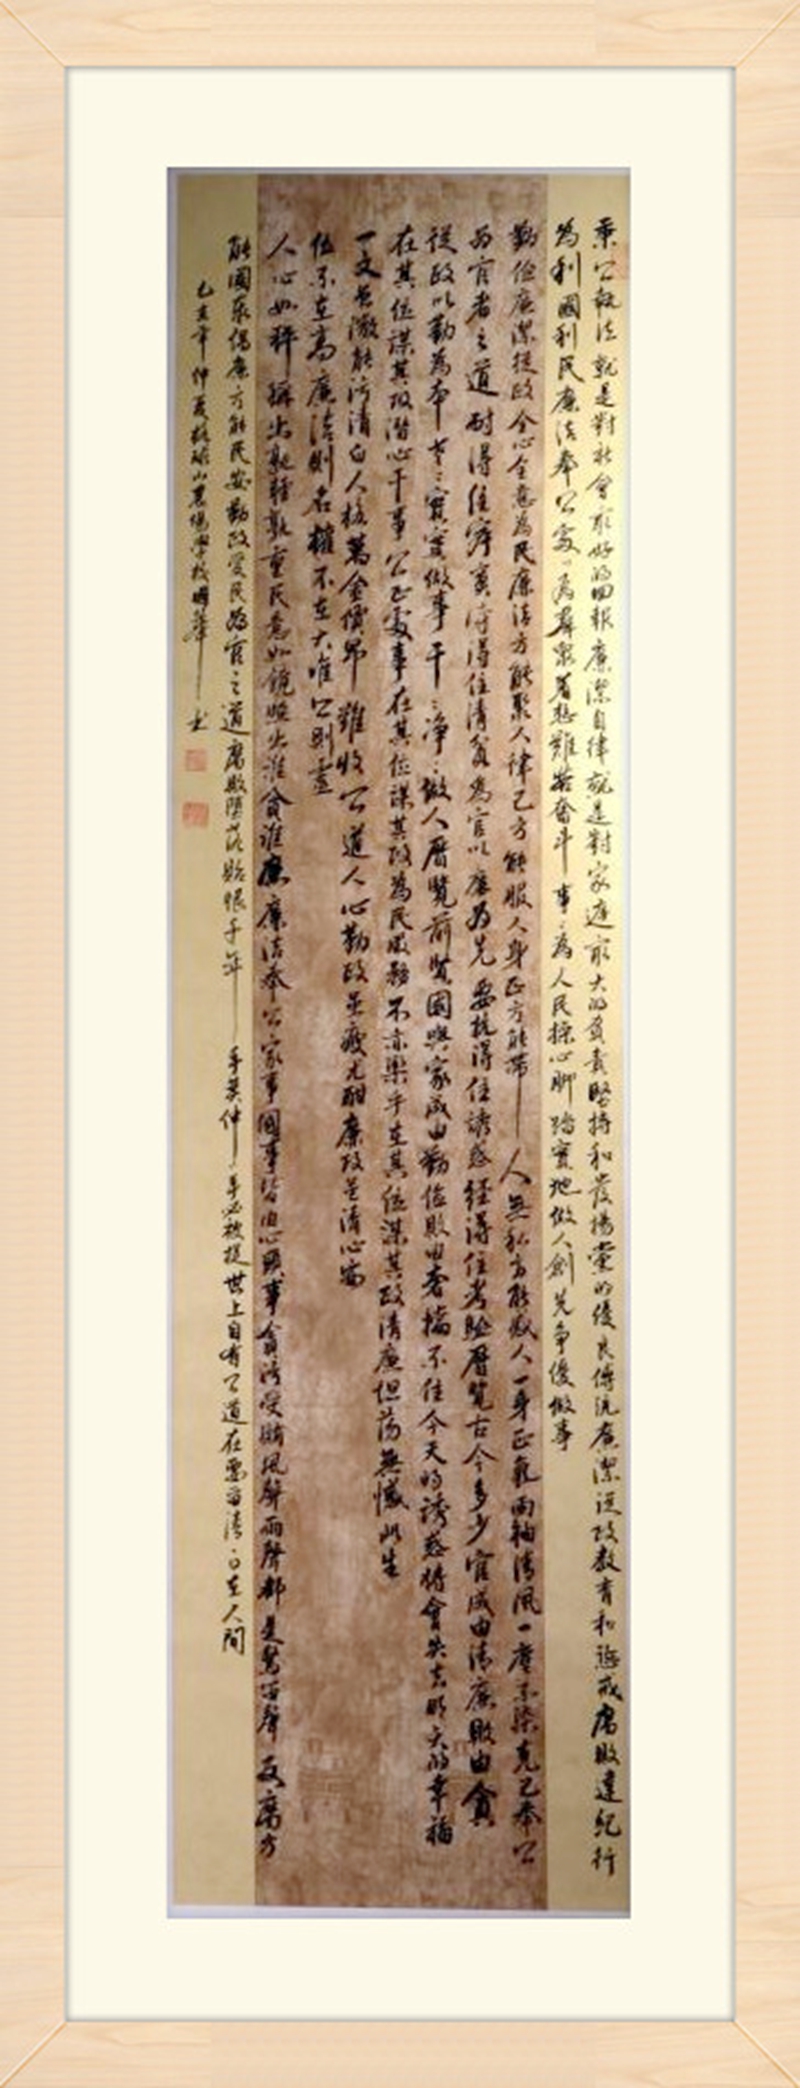 秉公執法就是對社會最好的回報廉潔自律就是對家庭最大的負責堅持和發揚黨的優良傳統廉潔從政教育和懲戒腐敗違紀行
為利國利民廉洁奉公處〻為群衆着想艱苦奮斗事〻為人民操心腳踏實地做人創先争優做事
勤儉廉潔從政全心全意為民廉洁方能聚人律己方能服人身正方能带人無私方能感人一身正氣兩袖清风一塵不染克己奉公
為官者之道耐得住寂寞守得住清貧為官以廉為先要抗得住誘惑經得住考驗曆覽古今多少官成由清廉敗由貪
從政以勤為本老〻實實做事干〻净〻做人曆覽前賢國與家成由勤儉敗由奢擋不住今天的誘惑將會失去明天的幸福
在其位謀其政潜心干事公正處事在其位謀其政為民服務不亦樂乎在其位謀其政清廉坦荡無憾此生
一文無激能污清白人格萬金價昂難收公道人心勤政無疲尤酣廉政是清心斋
位不在高廉洁則名權不在大唯公則靈
人心如秤稱出孰輕孰重民意如鏡照出誰貪誰廉廉洁奉公家事國事皆由心顺事貪污受賄风聲雨聲都是驚雷聲反腐方
能國泰倡廉方能民安勤政愛民為官之道腐敗堕落貽恨千年手莫伸手必被捉世上自有公道在要留清白在人間
乙亥年仲夏於珠山農場學校國華書